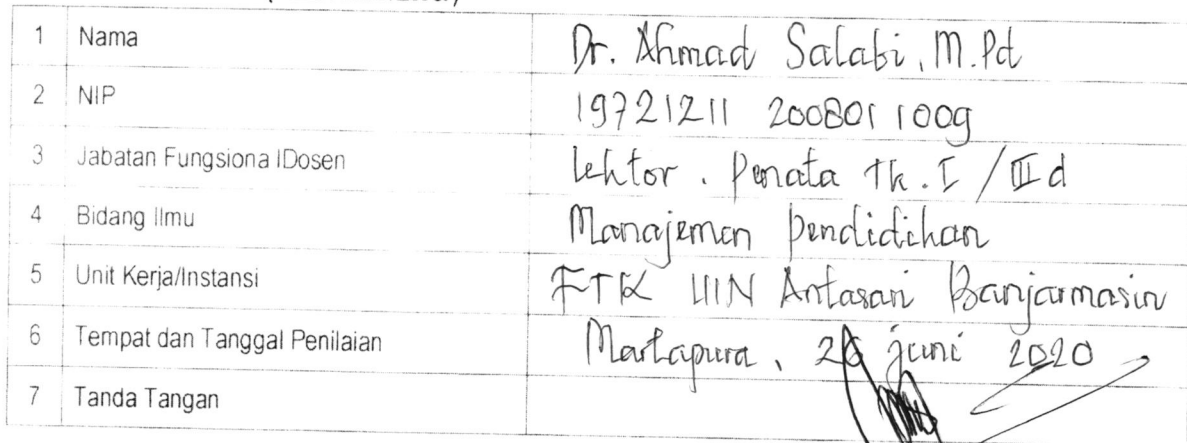 1 Nama Dr. Ahmad Salabi, M.Pd
2 NIP 19721211 200801 1009
3 Jabatan Fungsiona lDosen Lektor. Penata Tk. I / III d
4 Bidang Ilmu Manajemen Pendidikan
5 Unit Kerja/Instansi FTK UIN Antasari Banjarmasin
6 Tempat dan Tanggal Penilaian Martapura, 26 Juni 2020
7 Tanda Tangan